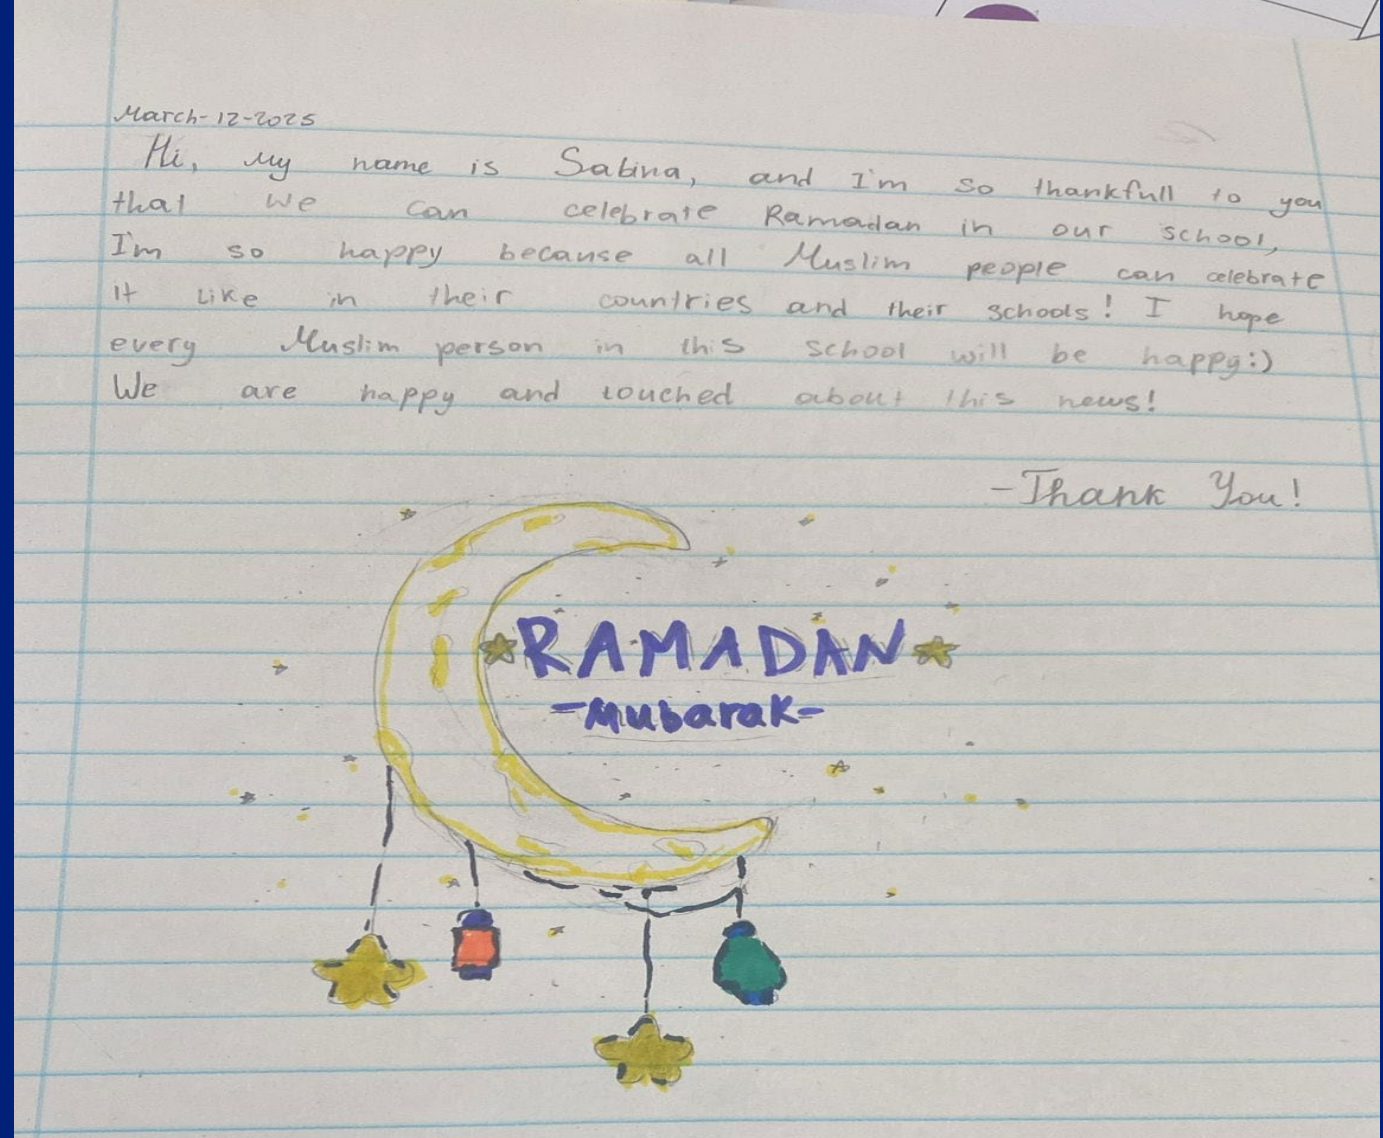 March-12-2025
Hi, my name is Sabina, and I'm so thankfull to you
that we can celebrate Ramadan in our school,
I'm so happy because all Muslim people can celebrate
It Like in their countries and their schools! I hope
every Muslim person in this school will be happy:)
We are happy and touched about this news!
-Thank You!
RAMADAN
-Mubarak-